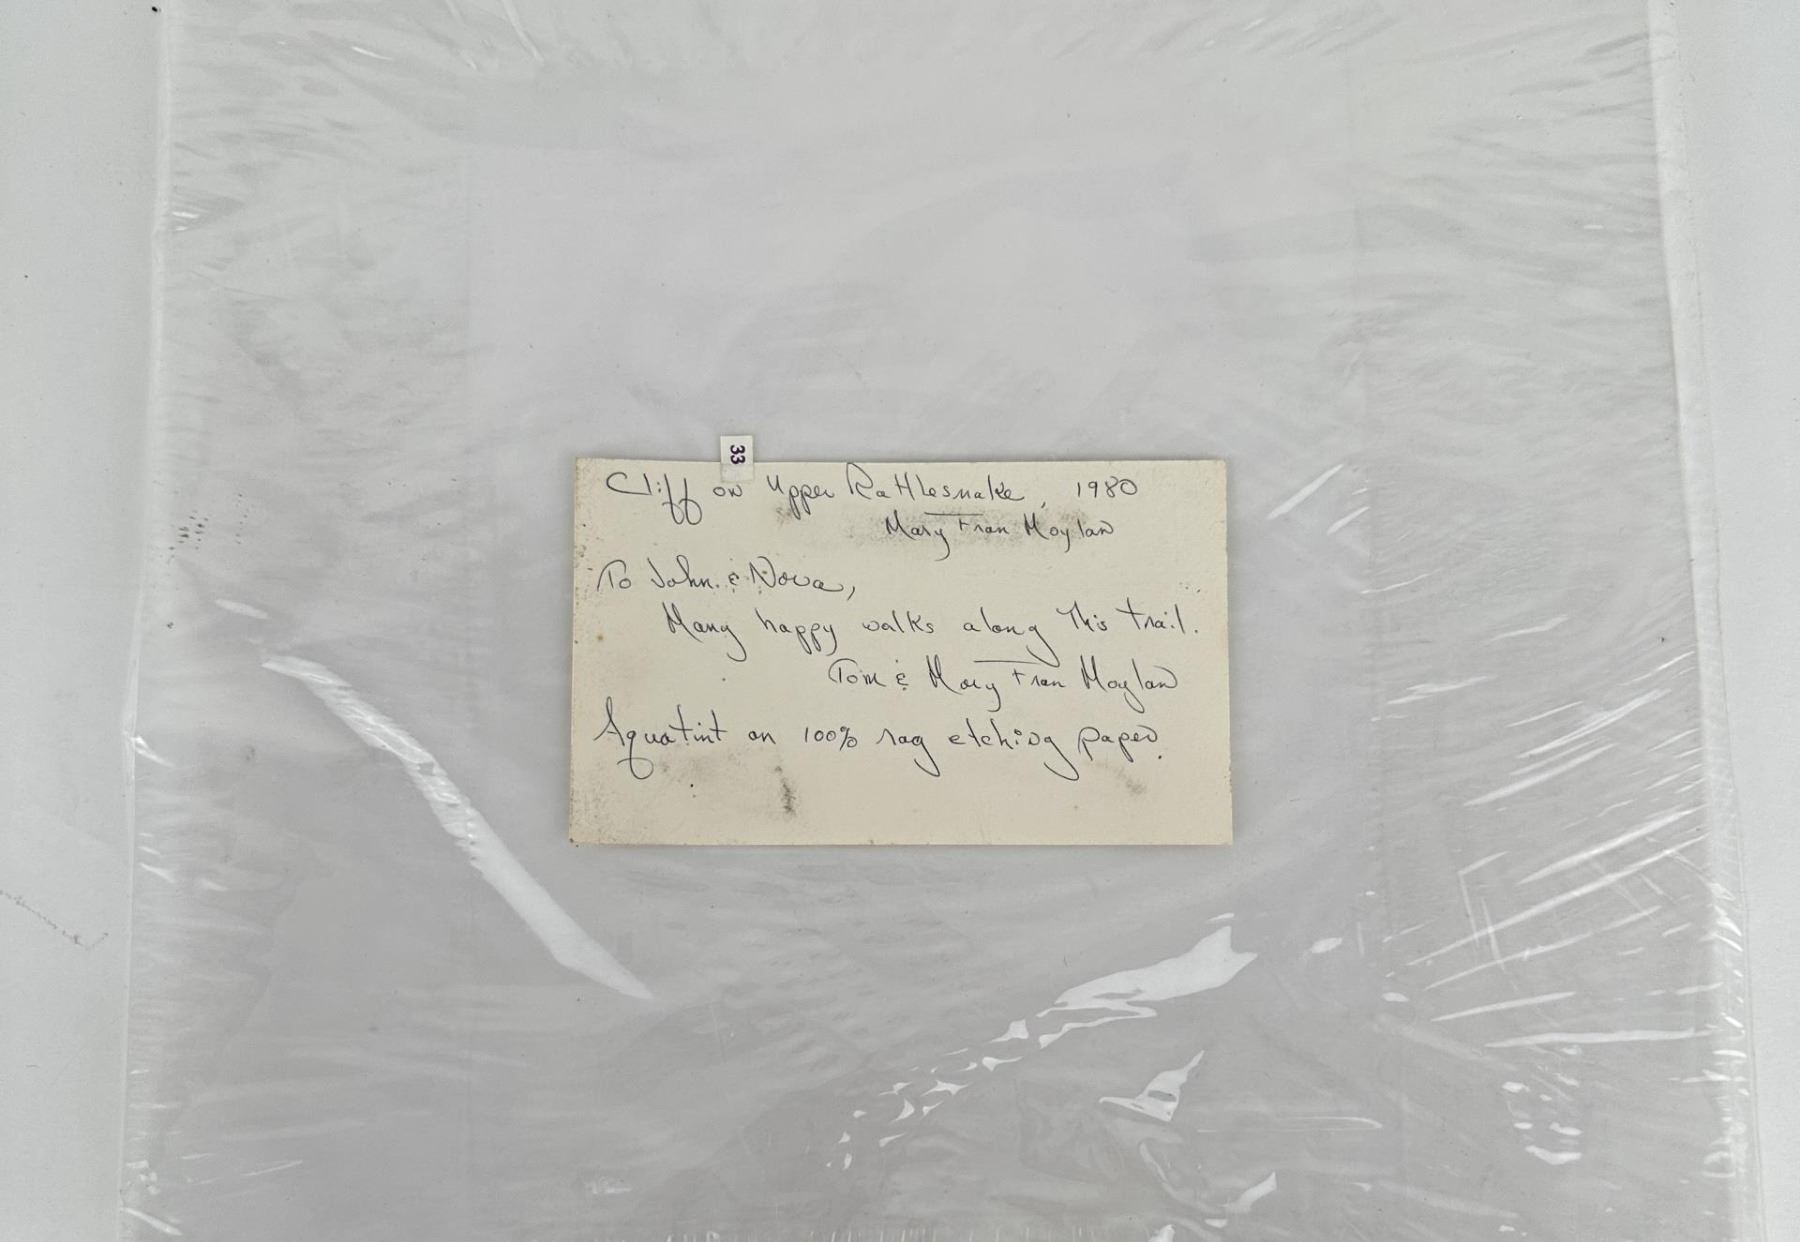 33
Cliff on Upper Rattlesnake, 1980
Mary Fran Moylan
To John & Nova,
Many happy walks along this trail.
Tom & Mary Fran Moylan
Aquatint on 100% rag etching paper.